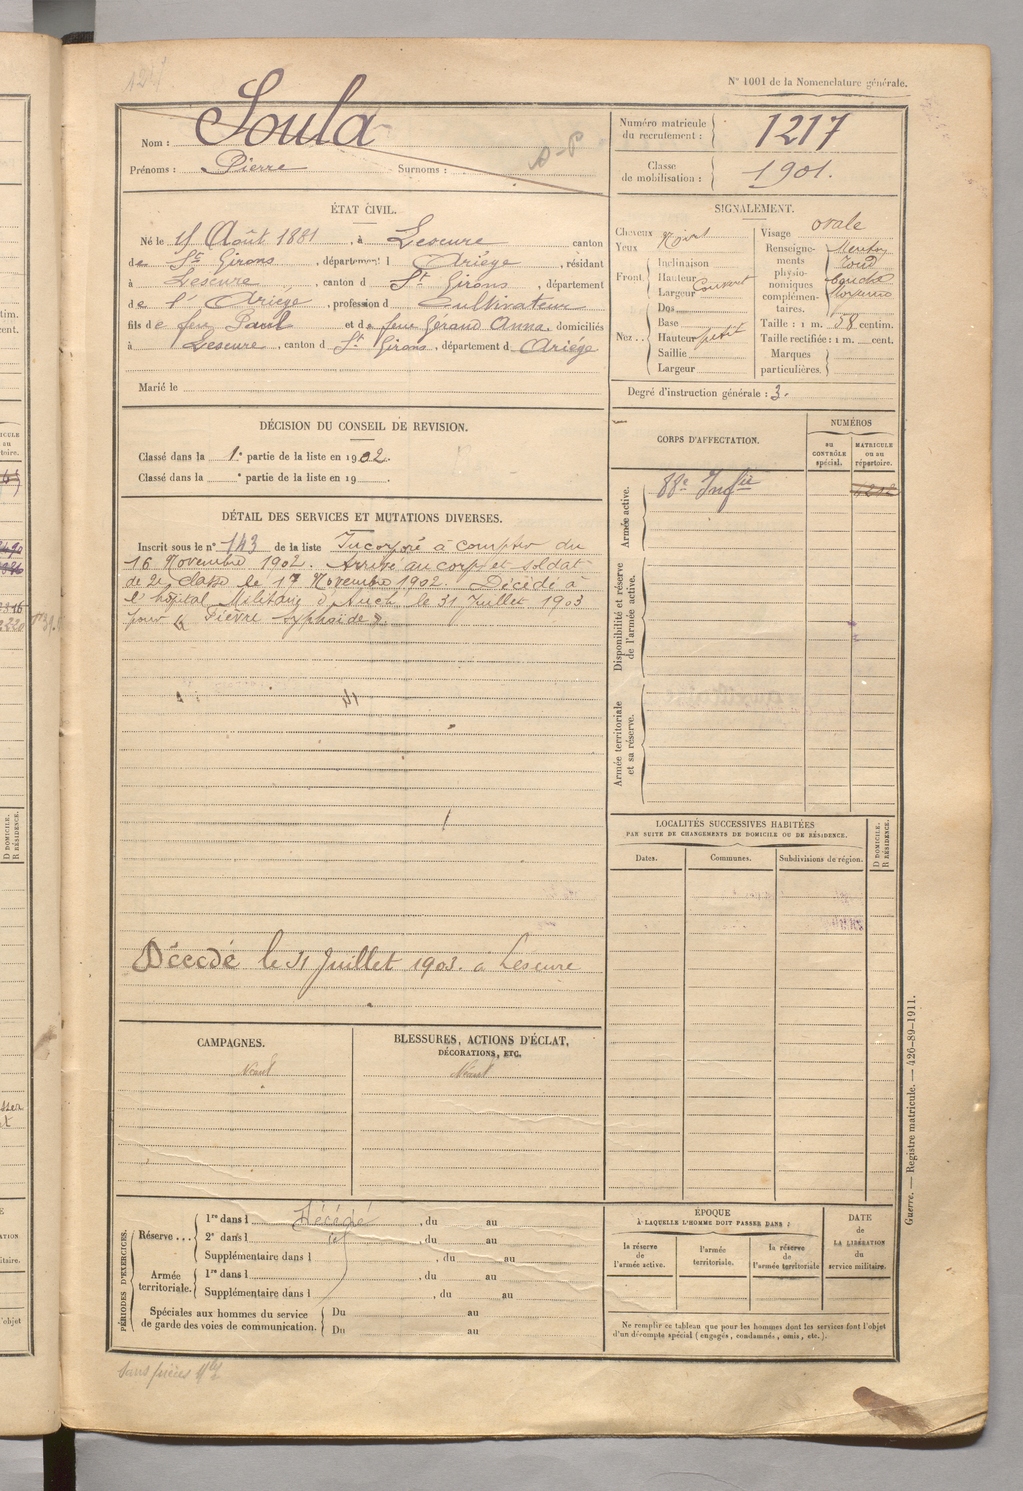 N° 1001 de la Nomenclature générale.
Nom : Soula
Prénoms : Pierre Surnoms :
Numéro matricule du recrutement : 1217
Classe de mobilisation : 1901.
ÉTAT CIVIL.
Né le Août 1881, à Lescure canton
de St Girons, département d Ariège, résidant
à Lescure, canton d St Girons, département
de l'Ariège, profession d Cultivateur
fils de feu Paul et de feue Géraud Anna, domiciliés
à Lescure, canton d St Girons, département d Ariège
Marié le
SIGNALEMENT.
Cheveux Noirs
Yeux
Front.
Inclinaison
Hauteur
Largeur Couvert
Nez..
Dos
Base
Hauteur petit
Saillie
Largeur
Visage ovale
Renseignements physionomiques complémentaires. Menton rond
Taille : 1 m. 58 centim.
Taille rectifiée : 1 m. cent.
Marques particulières.
Degré d'instruction générale : 3.
DÉCISION DU CONSEIL DE REVISION.
Classé dans la 1e partie de la liste en 1902.
Classé dans la e partie de la liste en 19 .
DÉTAIL DES SERVICES ET MUTATIONS DIVERSES.
Inscrit sous le n° 143 de la liste Incorporé à compter du
16 Novembre 1902. Arrivé au corps et soldat
de 2e classe le 17 Novembre 1902. Décédé à
l'hôpital Militaire d'Auch le 31 Juillet 1903
pour Fièvre typhoïde
Décédé le 31 Juillet 1903. à Lescure
CORPS D'AFFECTATION.
NUMÉROS
au CONTRÔLE spécial.
MATRICULE ou au répertoire.
Armée active.
88e Infie
Disponibilité et réserve de l'armée active.
Armée territoriale et sa réserve.
LOCALITÉS SUCCESSIVES HABITÉES
PAR SUITE DE CHANGEMENTS DE DOMICILE OU DE RÉSIDENCE.
Dates.
Communes.
Subdivisions de région.
D DOMICILE.
R RÉSIDENCE.
CAMPAGNES.
Néant
BLESSURES, ACTIONS D'ÉCLAT,
DÉCORATIONS, ETC.
Néant
PÉRIODES D'EXERCICES.
Réserve...
1re dans l Décédé, du au
2e dans l , du au
Supplémentaire dans l , du au
Armée territoriale.
1re dans l , du au
Supplémentaire dans l , du au
Spéciales aux hommes du service
de garde des voies de communication.
Du au
Du au
ÉPOQUE
À LAQUELLE L'HOMME DOIT PASSER DANS :
la réserve de l'armée active.
l'armée territoriale.
la réserve de l'armée territoriale
DATE de LA LIBÉRATION du service militaire.
Ne remplir ce tableau que pour les hommes dont les services font l'objet
d'un décompte spécial (engagés, condamnés, omis, etc.).
Guerre. — Registre matricule. — 426-89-1911.